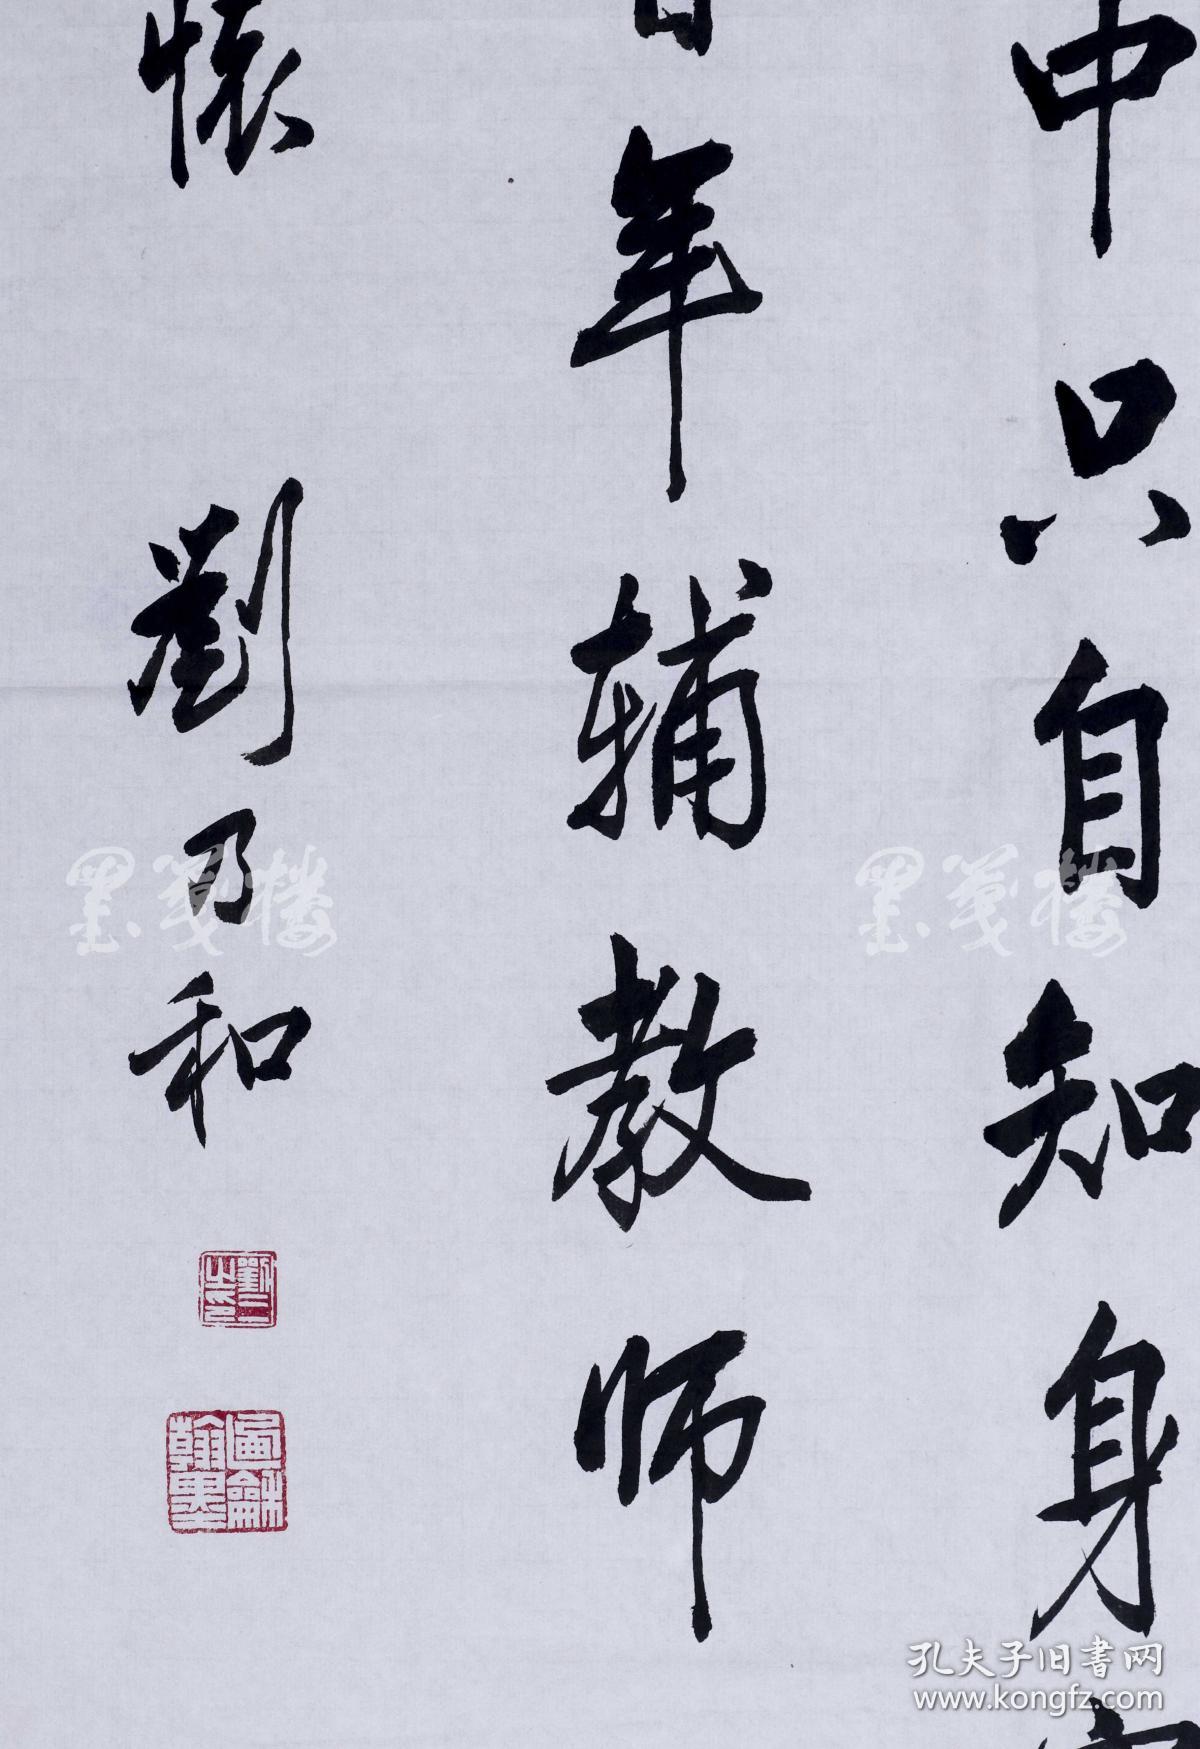 中只自知身
年辅教师
懷
劉乃和
墨笺楼
墨笺楼
劉乃和之印
翰墨
孔夫子旧書网
www.kongfz.com